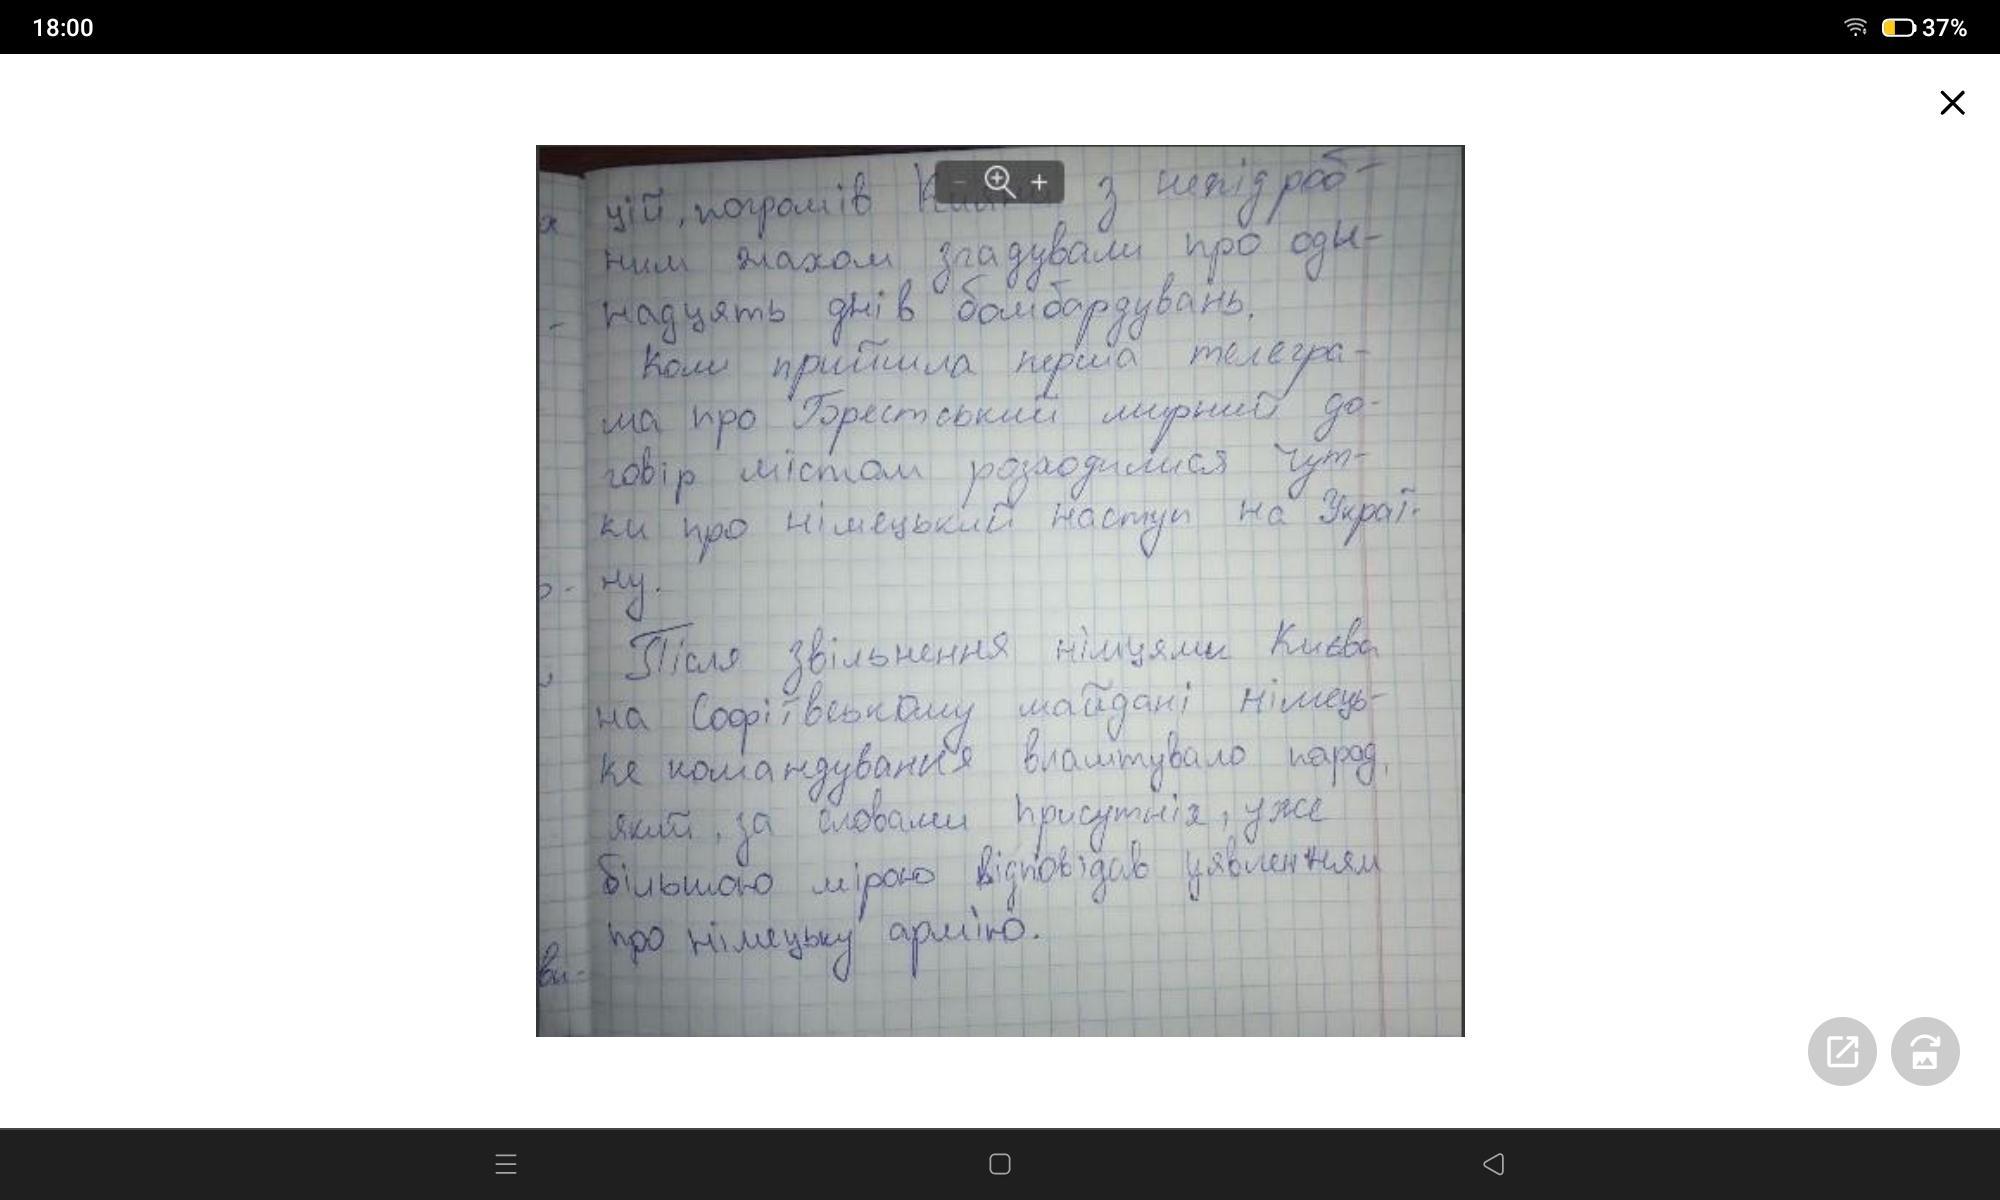 18:00
37%
цій, погромів з непідроб-
ним жахом згадували про оди-
надцять днів бомбардувань.
Коли прийшла перша телегра-
ма про Брестський мирний до-
говір містом розходилися чут-
ки про німецький наступ на Украї-
ну.
Після звільнення німцями Києва
на Софіївському майдані німець-
ке командування влаштувало парад,
який, за словами присутніх, уже
більшою мірою відповідав уявленням
про німецьку армію.
ви-